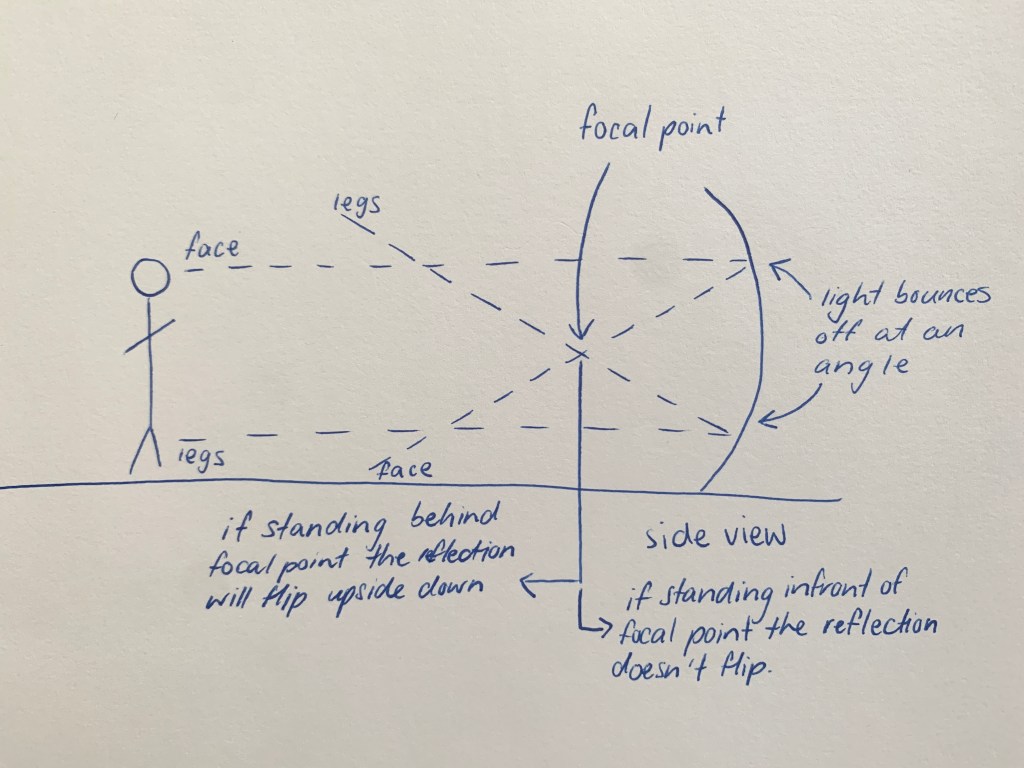 focal point
legs
face
light bounces
off at an
angle
legs
face
if standing behind
focal point the reflection
will flip upside down
side view
if standing infront of
focal point the reflection
doesn't flip.